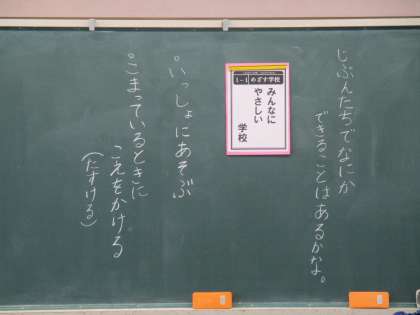 じぶんたちでなにか
できることはあるかな。
1-1 めざす学校
みんなに
やさしい
学校
。いっしょにあそぶ
。こまっているときに
こえをかける
(たすける)